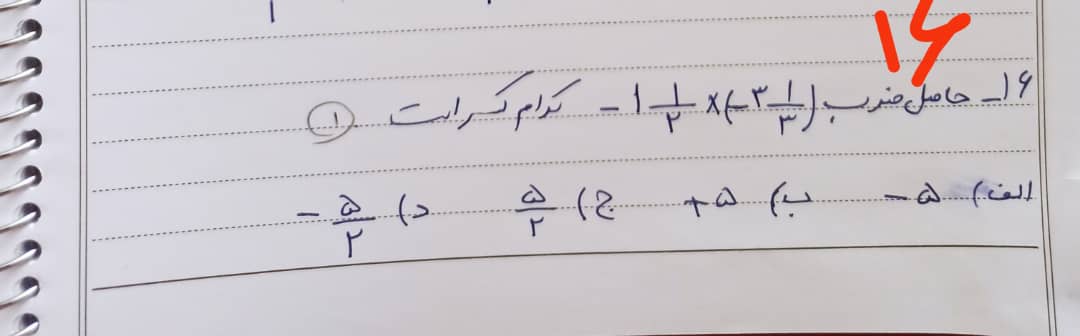 ۱۶
۱۶- حاصل ضرب (-۳ ۱/۳) × -۱ ۱/۲ کدام کسر است ۱
الف) -۵ ب) +۵ ج) ۵/۲ د) -۵/۲